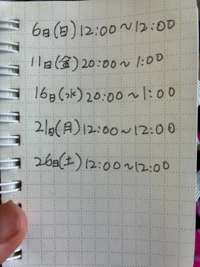 6日(日)12:00〜12:00
11日(金)20:00〜1:00
16日(水)20:00〜1:00
21日(月)12:00〜12:00
26日(土)12:00〜12:00